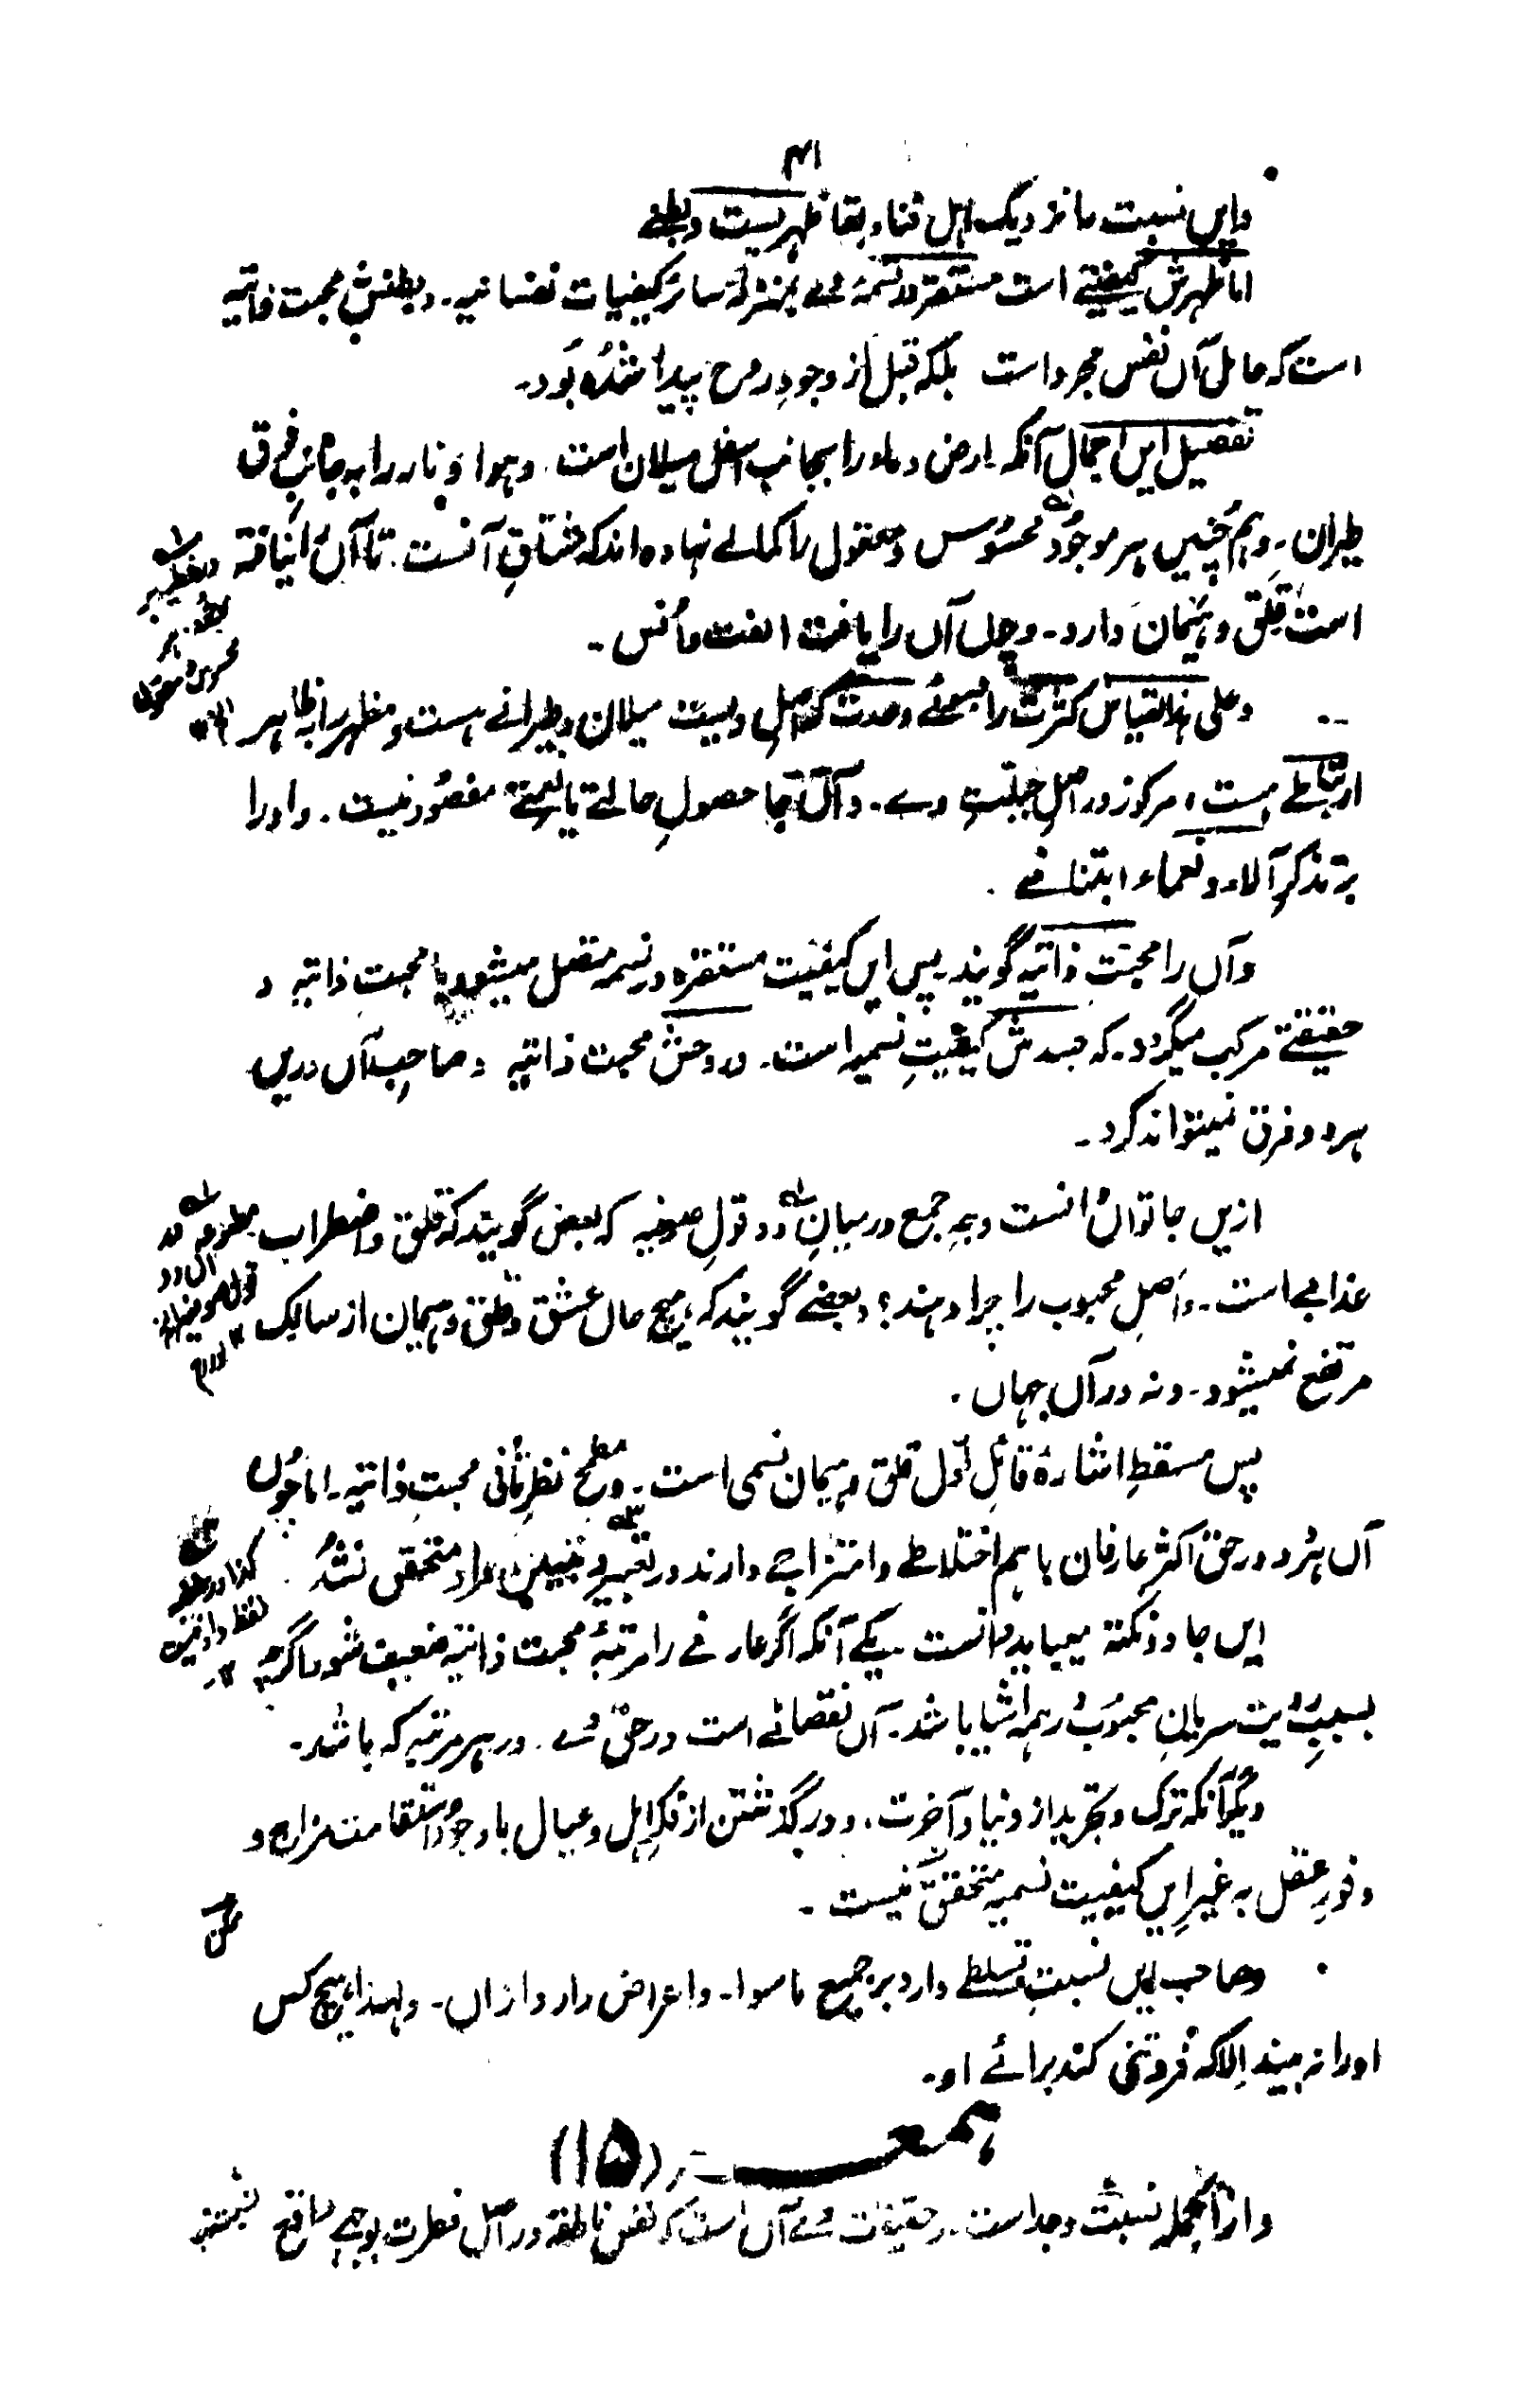 ۴۱
وایں نسبت ما نزدیک اہل فنا و بقا ظہریست و بطنے
اما ظہرش کیفیتے است مستقرہ در نسمۂ وے بمنزلہ سائر کیفیات نفسانیہ۔ و بطنش محبت ذاتیہ
است کہ حامل آں نفس مجرد است بلکہ قبل از وجودِ روح پیدا شدہ بود۔
تفصیل ایں اجمال آنکہ ارض و ماء را بجانب اسفل میلان است۔ و ہوا و نار را بہ جانبِ فوق
طیران۔ و ہم چنیں ہر موجود محسوس و معقول را کمالے نہادہ اند کہ مشتاقِ آنست۔ تا آں را نیافتہ
است قلق و ہیمان دارد۔ و چوں آں را یافت الفت و اُنس۔
و علی ہذا القیاس کثرت را بسوئے وحدت کہ اصل ویست میلان و طیرانے ہست و مظہر را بظاہر
ارتباطے ہست، مرکوز در اصل جبلتِ وے۔ و آں جا حصولِ حالتے یا نعمتے مقصود نیست۔ و او را
بر تذکرِ آلاء و نعماء ابتنا نے۔
و آں را محبتِ ذاتیہ گویند پس ایں کیفیت مستقرہ در نسمہ متصل میشود با محبت ذاتیہ و
حقیقتے مرکب میگردد۔ کہ جسدش کیفیتِ نسمیہ است۔ و روحش محبت ذاتیہ و صاحب آں دریں
ہر دو فرق نمیتواند کرد۔
ازیں جا تواں دانست وجہِ جمع درمیانِ دو قولِ صوفیہ کہ بعض گویند کہ قلق و اضطراب
عذابے است۔ و اصلِ محبوب را چرا دہند؟ و بعضے گویند کہ ہیچ حال عشق و قلق و ہیمان از سالک
مرتفع نمیشود۔ و نہ در آں جہاں۔
پس مسقطِ اشارۂ قائلِ اول قلق و ہیمان نسمی است۔ و مطمح نظرِ ثانی محبتِ ذاتیہ۔ اما چوں
آں ہر دو در حق اکثر عارفان باہم اختلاطے و امتزاجے دارند در تعبیر مراد متحقق نشد
ایں جا دو نکتہ میباید دانست یکے آنکہ اگر عارفے را مرتبۂ محبت ذاتیہ ضعیف شود اگرچہ
بسببِ رؤیت سریانِ محبوب در ہمہ اشیا باشد۔ آں نقصانے است در حق وے۔ در ہر مرتبہ کہ باشد۔
دیگر آنکہ ترک و تجرید از دنیا و آخرت، و درگذشتن از فکرِ اہل و عیال باوجود استقامت مزاج و
وفورِ عقل بہ غیرِ ایں کیفیت نسمیہ متحقق نیست۔
و صاحب ایں نسبت تسلطے دارد بر جمیع ما سوا۔ و اعراض دارد از آں۔ و لہذا ہیچ کس
او را نہ بیند الا کہ فروتنی کند برائے او۔
ہمعہ (۱۵)
و از آنجملہ نسبت وجد است۔ و حقیقت وے آں است کہ نفس ناطقہ در اصل فطرت بوجہے واقع